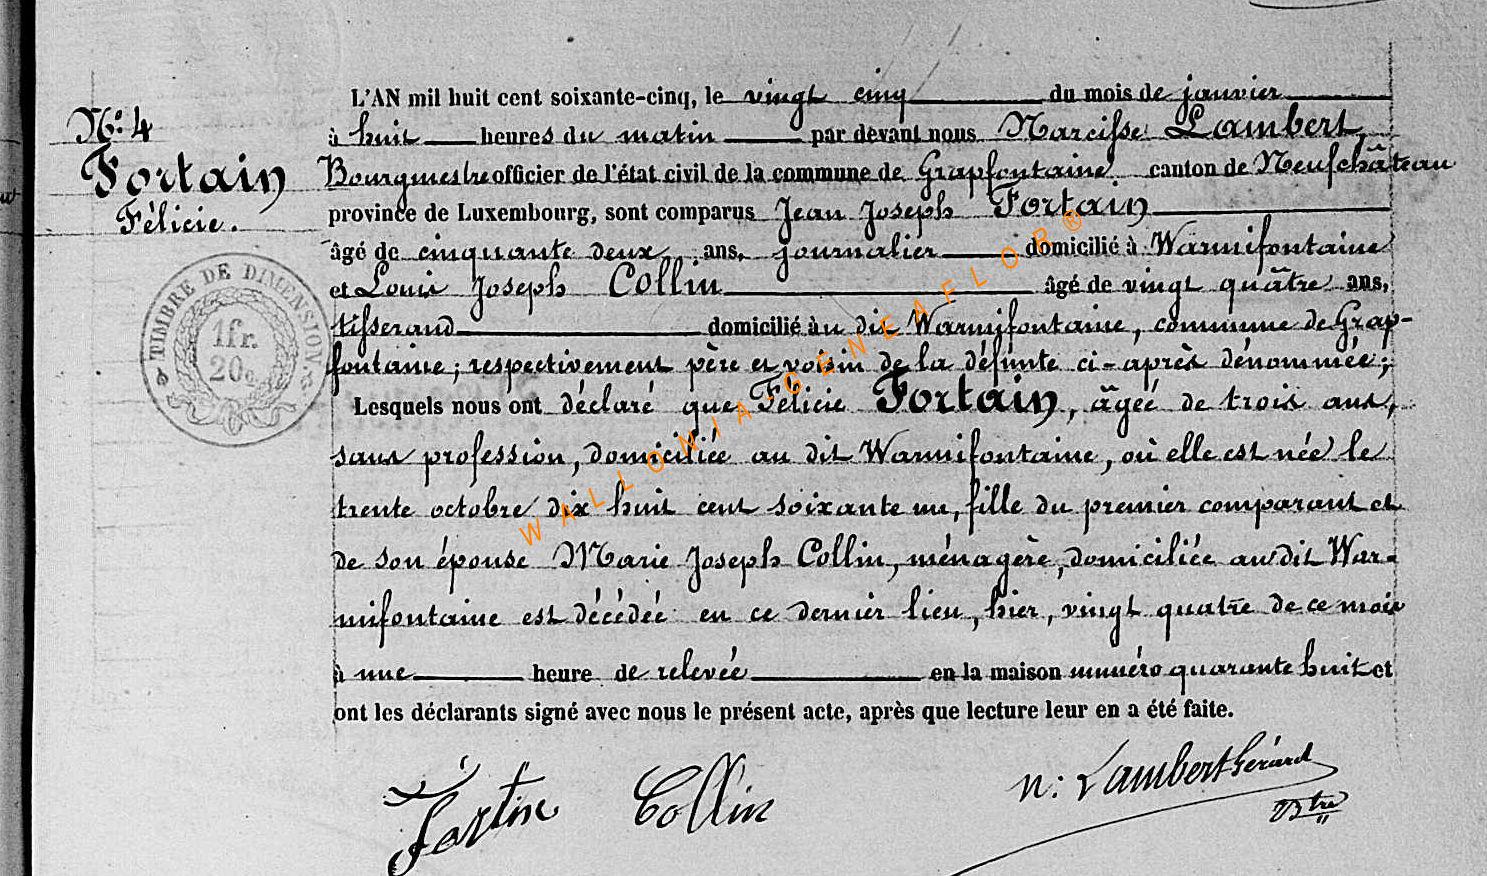 L'AN mil huit cent soixante-cinq, le vingt cinq du mois de janvier
N°: 4
à huit heures du matin par devant nous Narcisse Lambert,
Fortain
Bourgmestre officier de l'état civil de la commune de Grapfontaine canton de Neufchâteau
Félicie.
province de Luxembourg, sont comparus Jean Joseph Fortain
âgé de cinquante deux ans, journalier domicilié à Warmifontaine
et Louis Joseph Collin âgé de vingt quatre ans,
tisserand domicilié au dit Warmifontaine, commune de Grap-
fontaine; respectivement père et voisin de la défunte ci-après dénommée;
TIMBRE DE DIMENSION.
1fr.
20c.
Lesquels nous ont déclaré que Félicie Fortain, âgée de trois ans,
sans profession, domiciliée au dit Warmifontaine, où elle est née le
trente octobre dix huit cent soixante un, fille du premier comparant et
de son épouse Marie Joseph Collin, ménagère, domiciliée au dit War-
mifontaine est décédée en ce dernier lieu, hier, vingt quatre de ce mois
à une heure de relevée en la maison numéro quarante huit et
ont les déclarants signé avec nous le présent acte, après que lecture leur en a été faite.
WALLONIA-GENEAFLOR®
Fortin Collin N: Lambert Gérard
Btre